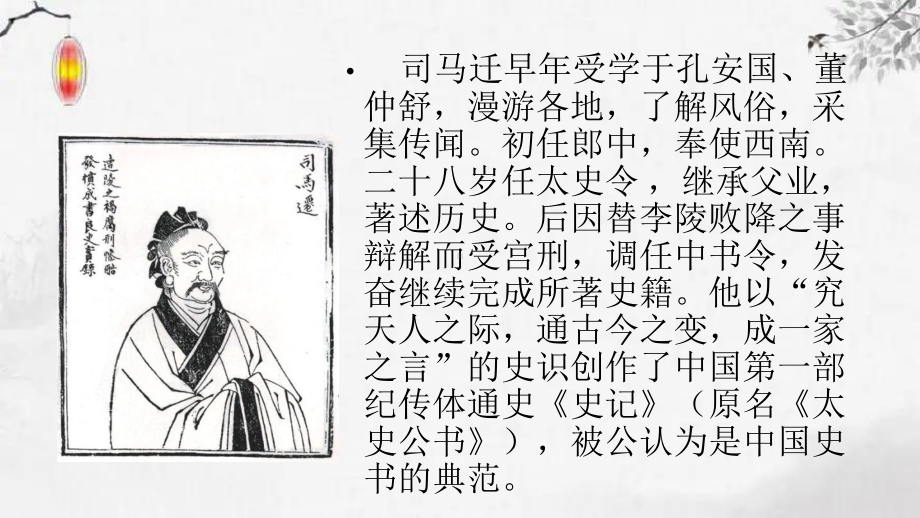 • 司马迁早年受学于孔安国、董
仲舒，漫游各地，了解风俗，采
集传闻。初任郎中，奉使西南。
二十八岁任太史令 ，继承父业，
著述历史。后因替李陵败降之事
辩解而受宫刑，调任中书令，发
奋继续完成所著史籍。他以“究
天人之际，通古今之变，成一家
之言”的史识创作了中国第一部
纪传体通史《史记》（原名《太
史公书》），被公认为是中国史
书的典范。
司馬遷
陵之禍腐刑慘
發憤成書良史實錄